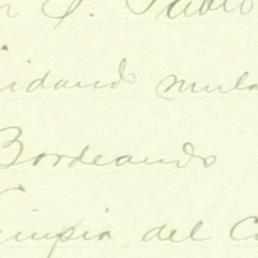 S. Pablo
idand mula
Bordeando
impia del C